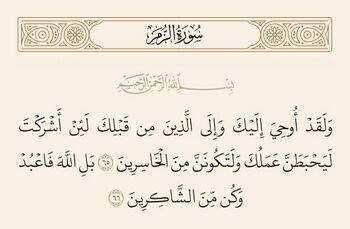 سُورَةُ الزُّمَر
بِسْمِ اللَّهِ الرَّحْمَٰنِ الرَّحِيمِ
وَلَقَدْ أُوحِيَ إِلَيْكَ وَإِلَى الَّذِينَ مِن قَبْلِكَ لَئِنْ أَشْرَكْتَ
لَيَحْبَطَنَّ عَمَلُكَ وَلَتَكُونَنَّ مِنَ الْخَاسِرِينَ ٦٥ بَلِ اللَّهَ فَاعْبُدْ
وَكُن مِّنَ الشَّاكِرِينَ ٦٦